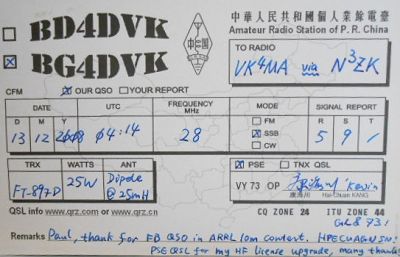 BD4DVK
BG4DVK
中國
中華人民共和國個人業餘電臺
Amateur Radio Station of P. R. China
TO RADIO
VK4MA via N3ZK
CFM OUR QSO YOUR REPORT
DATE UTC FREQUENCY MHz MODE SIGNAL REPORT
D M Y FM SSB CW R S T
13 12 2008 04:14 28 5 9 /
TRX WATTS ANT PSE TNX QSL
FT-897D 25W Dipole @25mH VY 73 OP 康海川 "Kevin"
康海川 Hai-Chuan KANG
QSL info www.qrz.com or www.qrz.cn
CQ ZONE 24 ITU ZONE 44
GL& 73!
Remarks Paul, thank for FB QSO in ARRL 10m contest. HPECUAGN SN!
PSE QSL for my HF license upgrade, many thanks